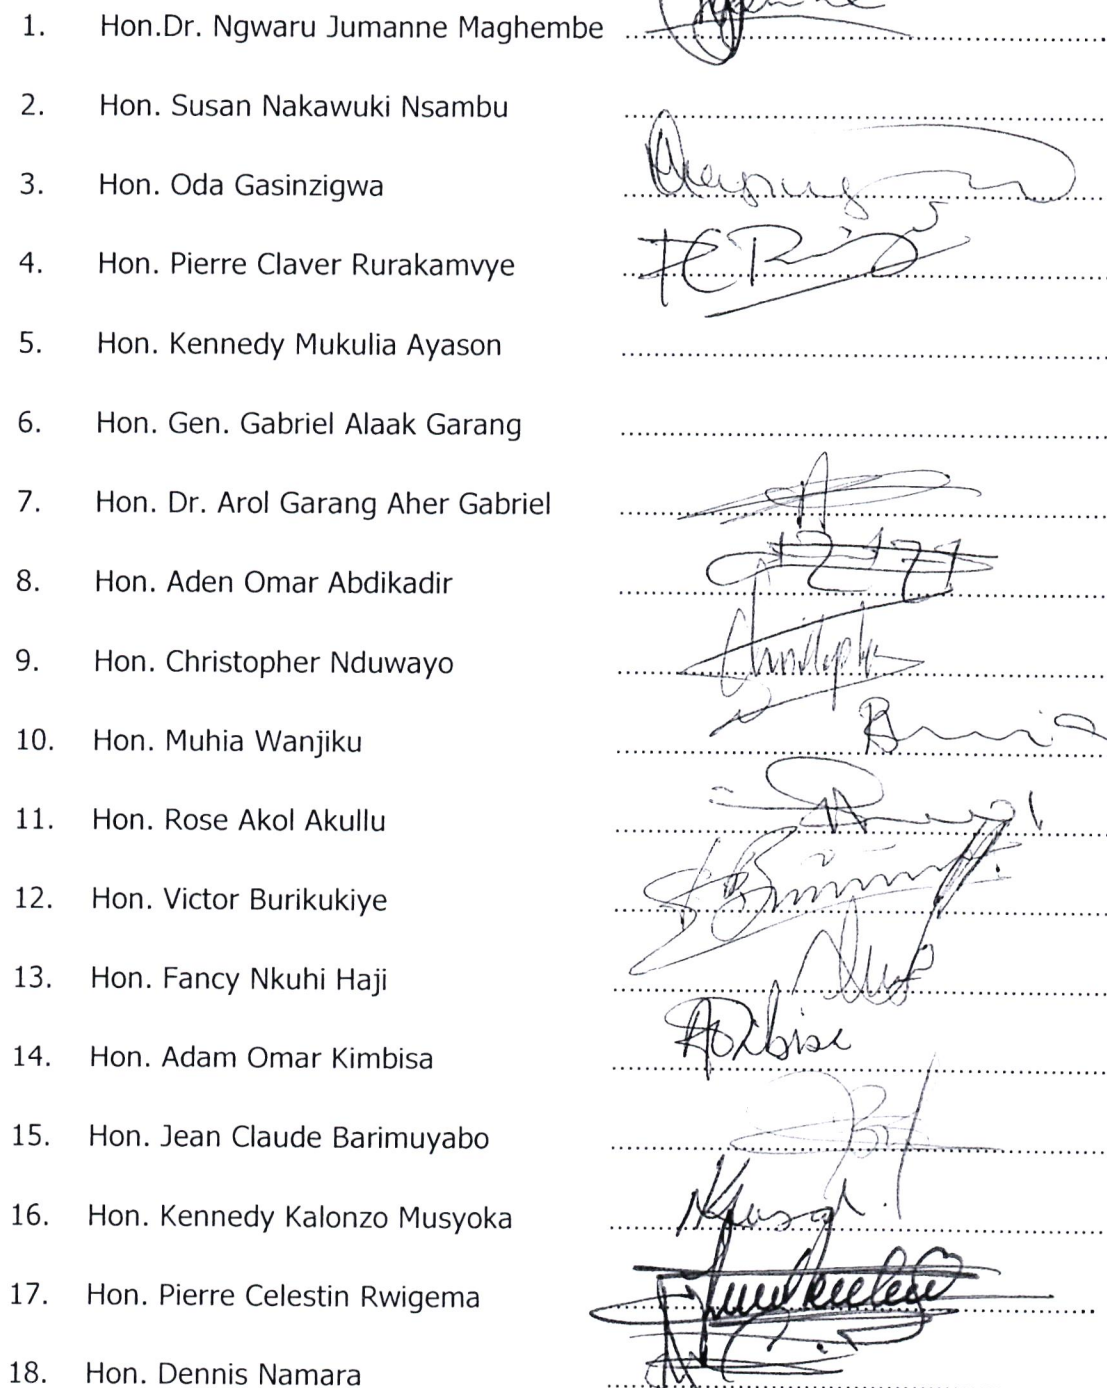 1. Hon.Dr. Ngwaru Jumanne Maghembe
2. Hon. Susan Nakawuki Nsambu
3. Hon. Oda Gasinzigwa
4. Hon. Pierre Claver Rurakamvye
5. Hon. Kennedy Mukulia Ayason
6. Hon. Gen. Gabriel Alaak Garang
7. Hon. Dr. Arol Garang Aher Gabriel
8. Hon. Aden Omar Abdikadir
9. Hon. Christopher Nduwayo
10. Hon. Muhia Wanjiku
11. Hon. Rose Akol Akullu
12. Hon. Victor Burikukiye
13. Hon. Fancy Nkuhi Haji
14. Hon. Adam Omar Kimbisa
15. Hon. Jean Claude Barimuyabo
16. Hon. Kennedy Kalonzo Musyoka
17. Hon. Pierre Celestin Rwigema
18. Hon. Dennis Namara